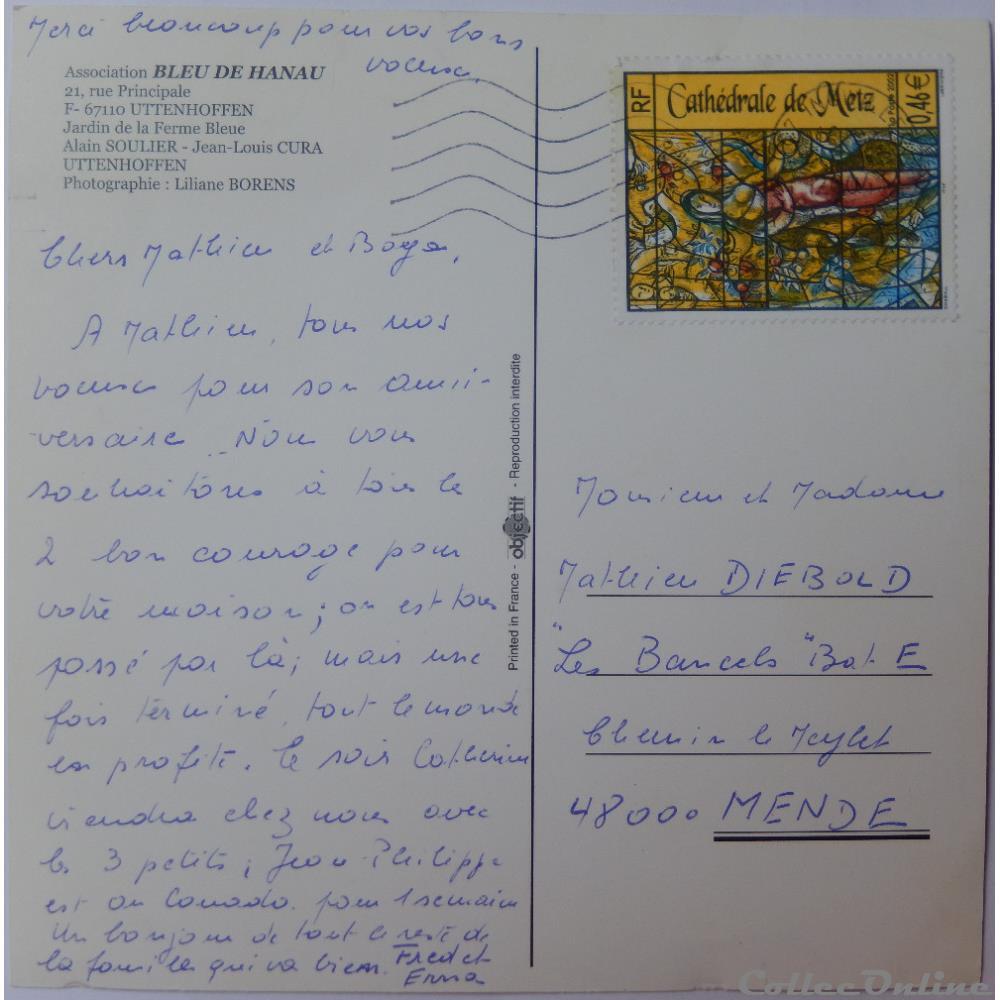 Merci beaucoup pour vos bons
voeux.
Association BLEU DE HANAU
21, rue Principale
F- 67110 UTTENHOFFEN
Jardin de la Ferme Bleue
Alain SOULIER - Jean-Louis CURA
UTTENHOFFEN
Photographie : Liliane BORENS
Chers Mathieu et
A Mathieu, tous nos
voeux pour son anni-
versaire. Nous vous
souhaitons à tous les
2 bon courage pour
votre maison ; on est tous
passé par là ; mais une
fois terminé, tout le monde
en profite. Ce soir Catherine
viendra chez nous avec
les 3 petits ; Jean-Philippe
est au Canada pour 1 semaine
Un bonjour de tout le reste de
la famille qui va bien. Fred et
Erna
Printed in France - objectif - Reproduction interdite
RF
Cathédrale de Metz
0,46€
Monsieur et Madame
Mathieu DIEBOLD
"Les Bancels" Bat E
Chemin le Meylet
48000 MENDE
CollecOnline